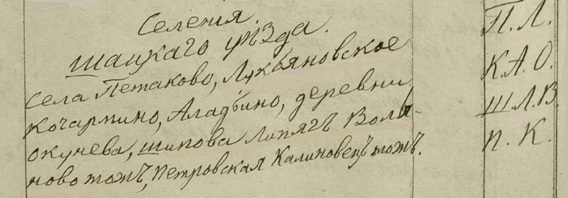 Селения.
Шацкаго уѣзда.
Села Петаково, Лукьяновское
Кочармино, Аладьино, деревни
окунева, шипова Липягъ Воль-
ново тожъ, Петровская Калиновецъ тожъ.
П. Л.
К. А. О.
Ш. Л. В.
П. К.